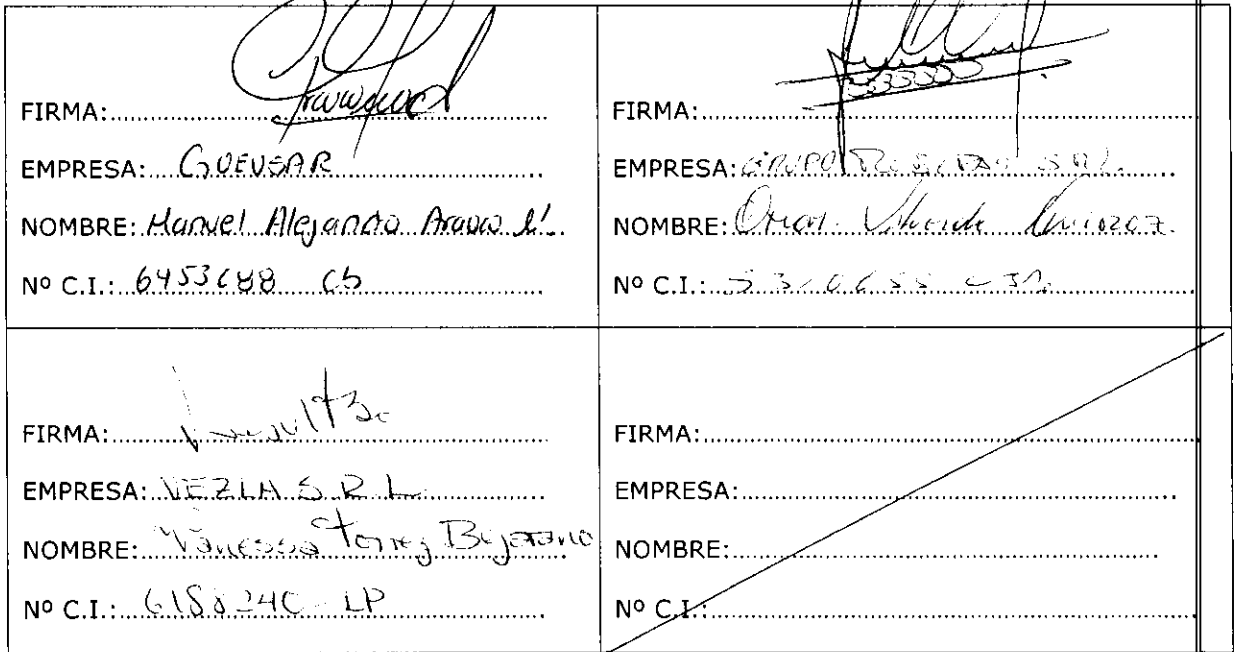 FIRMA:
EMPRESA: GUEVSAR
NOMBRE: Manuel Alejandro Arauco
Nº C.I.: 6453688 Cb
FIRMA:
EMPRESA: GRUPO S.R.L.
NOMBRE: Omar
Nº C.I.:
FIRMA:
EMPRESA: VEZLA S.R.L
NOMBRE: Vanessa Torrez Bejarano
Nº C.I.: LP
FIRMA:
EMPRESA:
NOMBRE:
Nº C.I.: